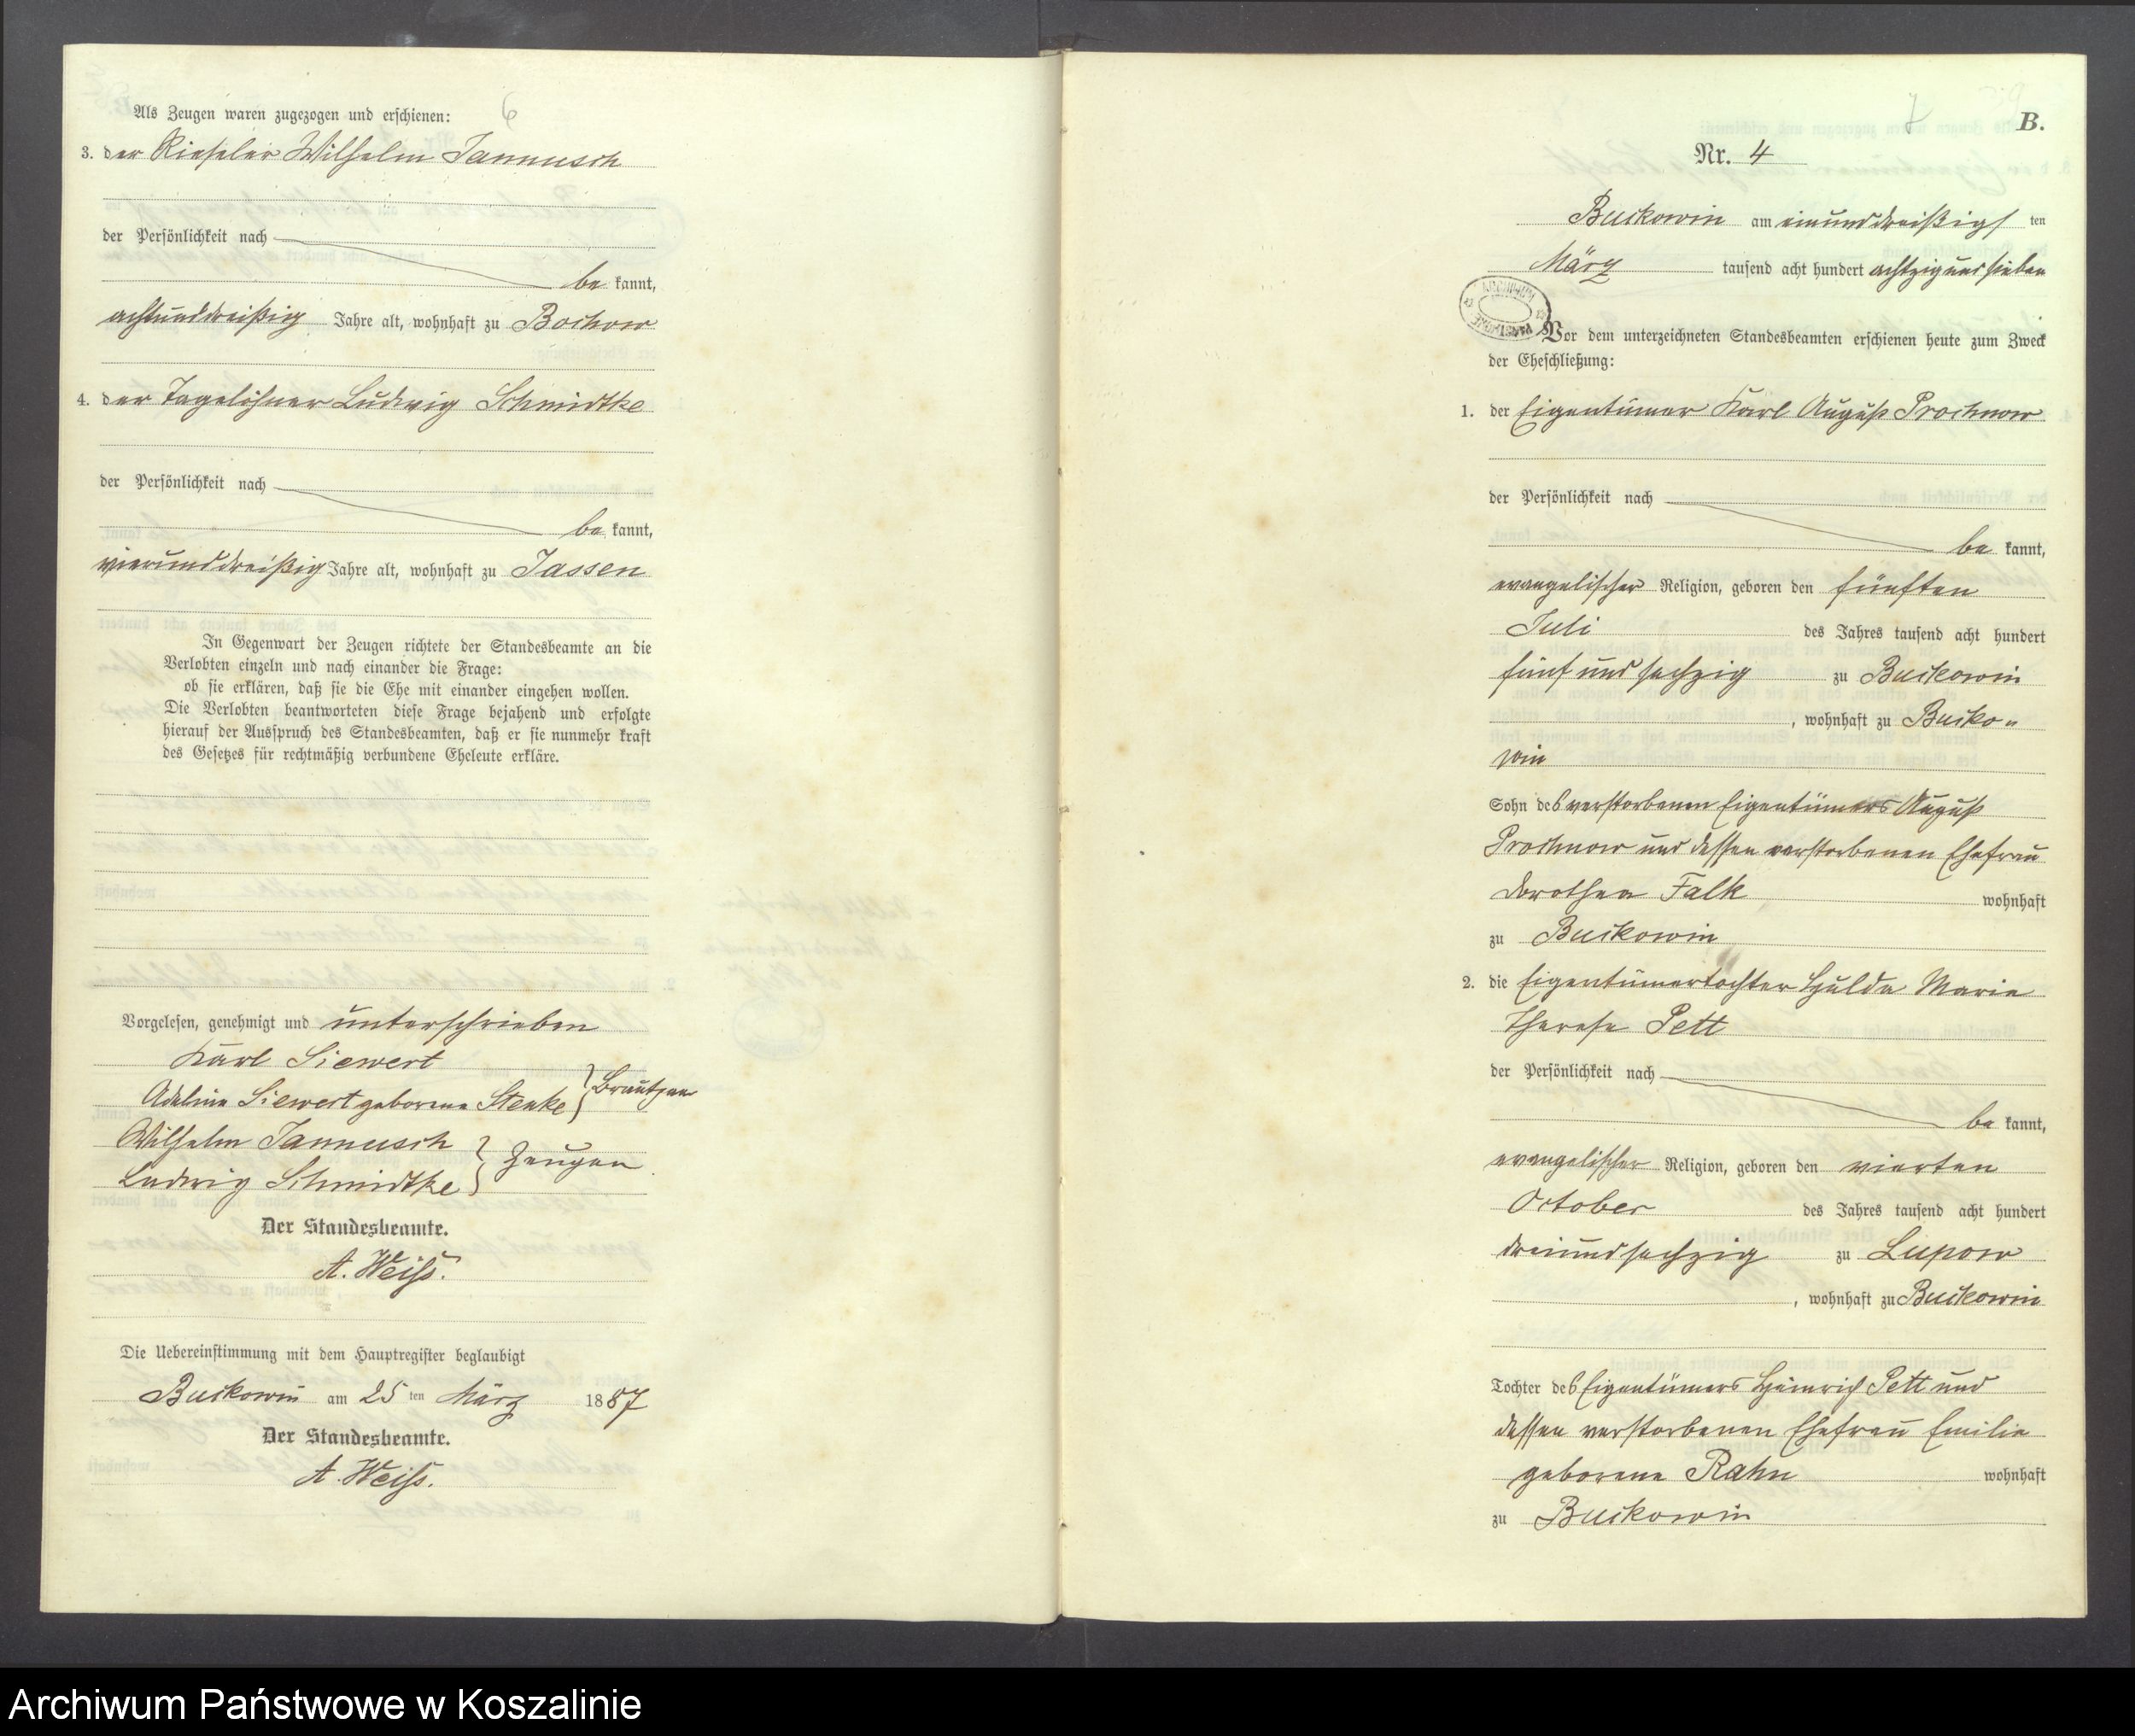 6
Als Zeugen waren zugezogen und erschienen:
3. der Rieseler Wilhelm Jannusch
der Persönlichkeit nach
be kannt,
achtunddreißig Jahre alt, wohnhaft zu Bochow
4. der Tagelöhner Ludwig Schmidtke
der Persönlichkeit nach
be kannt,
vierunddreißig Jahre alt, wohnhaft zu Jassen
In Gegenwart der Zeugen richtete der Standesbeamte an die
Verlobten einzeln und nach einander die Frage:
ob sie erklären, daß sie die Ehe mit einander eingehen wollen.
Die Verlobten beantworteten diese Frage bejahend und erfolgte
hierauf der Ausspruch des Standesbeamten, daß er sie nunmehr kraft
des Gesetzes für rechtmäßig verbundene Eheleute erkläre.
Vorgelesen, genehmigt und unterschrieben
Karl Siewert
Adeline Siewert geborene Stenke } Brautpaar
Wilhelm Jannusch
Ludwig Schmidtke } Zeugen
Der Standesbeamte.
A. Weiß.
Die Uebereinstimmung mit dem Hauptregister beglaubigt
Buckowin am 25 ten März 1887
Der Standesbeamte.
A. Weiß.
7
B.
Nr. 4
Buckowin am einunddreißigs ten
März tausend acht hundert achtzig und sieben
ARCHIWUM
Vor dem unterzeichneten Standesbeamten erschienen heute zum Zweck
der Eheschließung:
1. der Eigentümer Karl August Prochnow
der Persönlichkeit nach
be kannt,
evangelischer Religion, geboren den fünften
Juli des Jahres tausend acht hundert
fünf und sechzig zu Buckowin
, wohnhaft zu Bucko„
win
Sohn des verstorbenen Eigentümers August
Prochnow und dessen verstorbenen Ehefrau
Dorothea Falk wohnhaft
zu Buckowin
2. die Eigentümertochter Hulda Marie
Therese Pett
der Persönlichkeit nach
be kannt,
evangelischer Religion, geboren den vierten
October des Jahres tausend acht hundert
dreiundsechzig zu Lupow
, wohnhaft zu Buckowin
Tochter des Eigentümers Heinrich Pett und
dessen verstorbenen Ehefrau Emilie
geborene Rahn wohnhaft
zu Buckowin
Archiwum Państwowe w Koszalinie